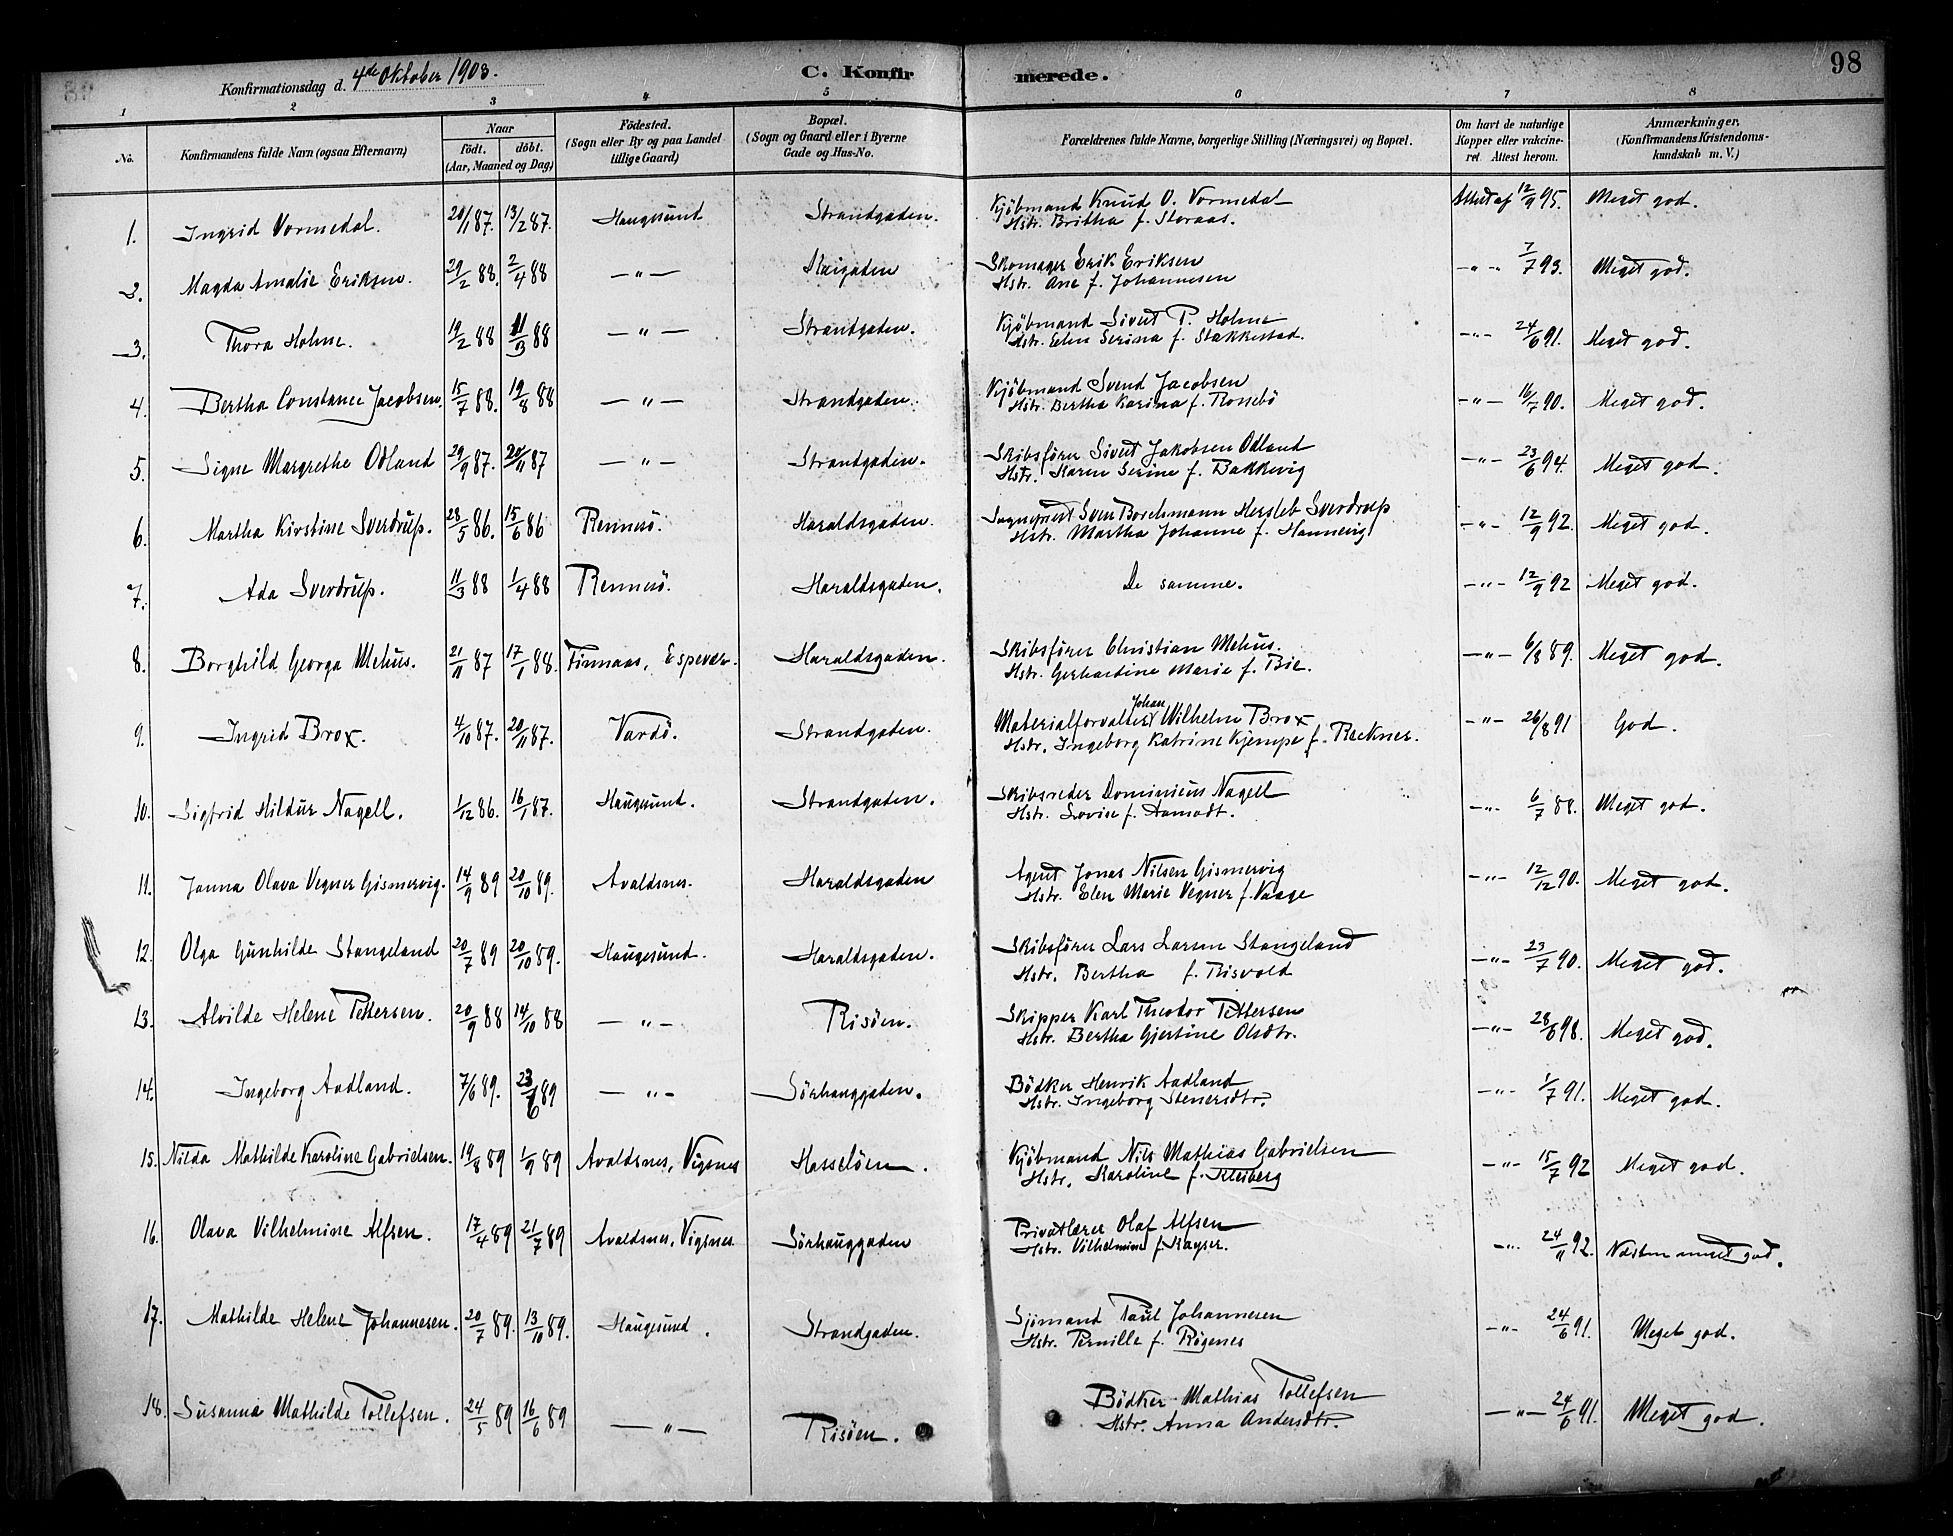 Konfirmationsdag d. 4de Oktober 1903. C. Konfirmerede. 98
1 2 3 4 5 6 7 8
No. Konfirmandens fulde Navn (ogsaa Efternavn) Naar födt. döbt. (Aar, Maaned og Dag) Födested. (Sogn eller By og paa Landet tillige Gaard) Bopæl. (Sogn og Gaard eller i Byerne Gade og Hus-No. Forældrenes fulde Navne, borgerlige Stilling (Næringsvei) og Bopæl. Om havt de naturlige Kopper eller vakcineret. Attest herom. Anmærkninger. (Konfirmandens Kristendomskundskab m. V.)
1. Ingrid Vormedal. 20/1 87. 13/2 87. Haugesund Strandgaden. Kjöbmand Knud O. Vormedal Attest af 12/9 95. Meget god.
Hstr. Britha f. Storaas.
2. Magda Amalie Eriksen. 29/2 88. 2/4 88 —"— Skomager Erik Eriksen —"— 7/7 93. Meget god.
Hstr. Ane f. Johannesen
3. Thora Holme. 19/2 88 11/3 88 —"— Strandgaden. Kjöbmand Sivert P. Holme —"— 24/6 91. Meget god.
Hstr. Elen Serina f. Stakkestad.
4. Bertha Constance Jacobsen. 15/7 88. 19/8 88 —"— Strandgaden. Kjöbmand Svend Jacobsen —"— 16/7 90. Meget god.
Hstr. Bertha Karina f. Rossebö
5. Signe Margrethe Odland 29/9 87. 20/11 87 —"— Strandgaden. Skibsförer Sivert Jakobsen Odland —"— 23/6 94. Meget god.
Hstr. Karen Serine f. Bakkevig
6. Martha Kirstine Sverdrup. 28/5 86. 15/6 86 Rennesö. Haraldsgaden. Sognepræst Sven Borchmann Hersleb Sverdrup —"— 12/9 92. Meget god.
Hstr. Martha Johanne f. Hannevig
7. Ada Sverdrup. 11/3 88 1/4 88 Rennesö. Haraldsgaden. De samme. —"— 12/9 92 Meget god.
8. Borghild Georga Mehus. 21/11 87 17/1 88. Finnaas, Espevær. Haraldsgaden. Skibsförer Christian Mehus. —"— 6/8 89. Meget god.
Hstr. Gerhardine Marie f. Bie.
9. Ingrid Brox. 4/10 87. 20/11 87. Vardö. Strandgaden. Materialforvalter Johan Wilhelm Brox —"— 26/8 91 God.
Hstr. Ingeborg Katrine Kjempe f. Reckner.
10. Sigfrid Hildur Nagell. 1/12 86. 16/1 87. Haugesund. Strandgaden. Skibsreder Dominicus Nagell —"— 6/7 88. Meget god.
Hstr. Lovise f. Aamodt.
11. Janna Olava Vegner Gismervig. 14/9 89 20/10 89. Avaldsnes. Haraldsgaden Agent Jonas Nilsen Gismervig —"— 12/12 90. Meget god.
Hstr. Elen Marie Vegner f. Vaage
12. Olga Gunhilde Stangeland 20/7 89 20/10 89. Haugesund. Haraldsgaden. Skibsförer Lars Larsen Stangeland —"— 23/7 90. Meget god.
Hstr. Bertha f. Risvold
13. Alvilde Helene Pettersen. 20/9 88 14/10 88 —"— Risöen. Skipper Karl Theodor Pettersen —"— 28/6 98. Meget god.
Hstr. Bertha Gjertine Olsdtr.
14. Ingeborg Aadland. 7/6 89. 23/6 89 —"— Sörhauggaden. Bödker Henrik Aadland —"— 1/7 91. Meget god.
Hstr. Ingeborg Stenersdtr.
15. Nilda Mathilde Karoline Gabrielsen. 19/8 89 1/9 89 Avaldsnes, Vigsnes Hasselöen. Kjöbmand Nils Mathias Gabrielsen —"— 15/7 92 Meget god.
Hstr. Karoline f. Kleiberg
16. Olava Vilhelmine Alfsen. 17/4 89 21/7 89 Avaldsnes, Vigsnes Sörhauggaden Privatlærer Olaf Alfsen —"— 24/11 92. Næsten meget god.
Hstr. Vilhelmine f. Kayser.
17. Mathilde Helene Johannesen. 20/7 89. 13/10 89. Haugesund. Strandgaden. Sjömand Paul Johannesen —"— 24/6 91. Meget god.
Hstr. Pernille f. Rögenes
18. Susanna Mathilde Tollefsen. 24/5 89 16/6 89 —"— Risöen. Bödker Mathias Tollefsen —"— 24/6 91. Meget god.
Hstr. Anna Andersdtr.